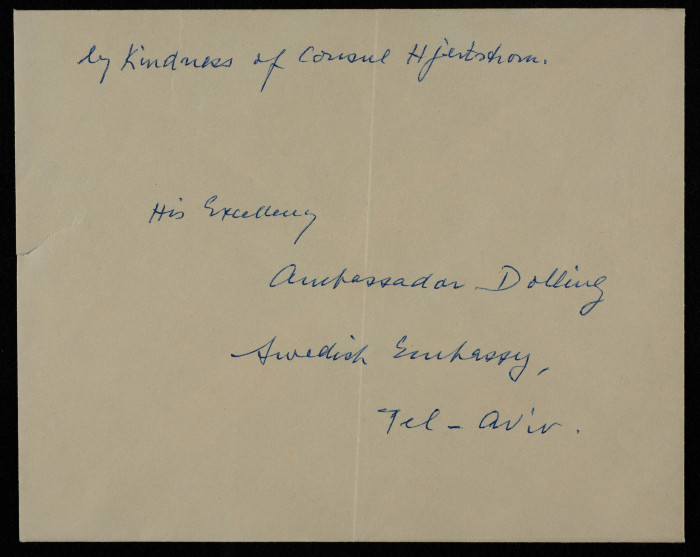 by Kindness of Consul Hjertstrom.
His Excellency
Ambassador Dolling
Swedish Embassy,
Tel - Aviv.